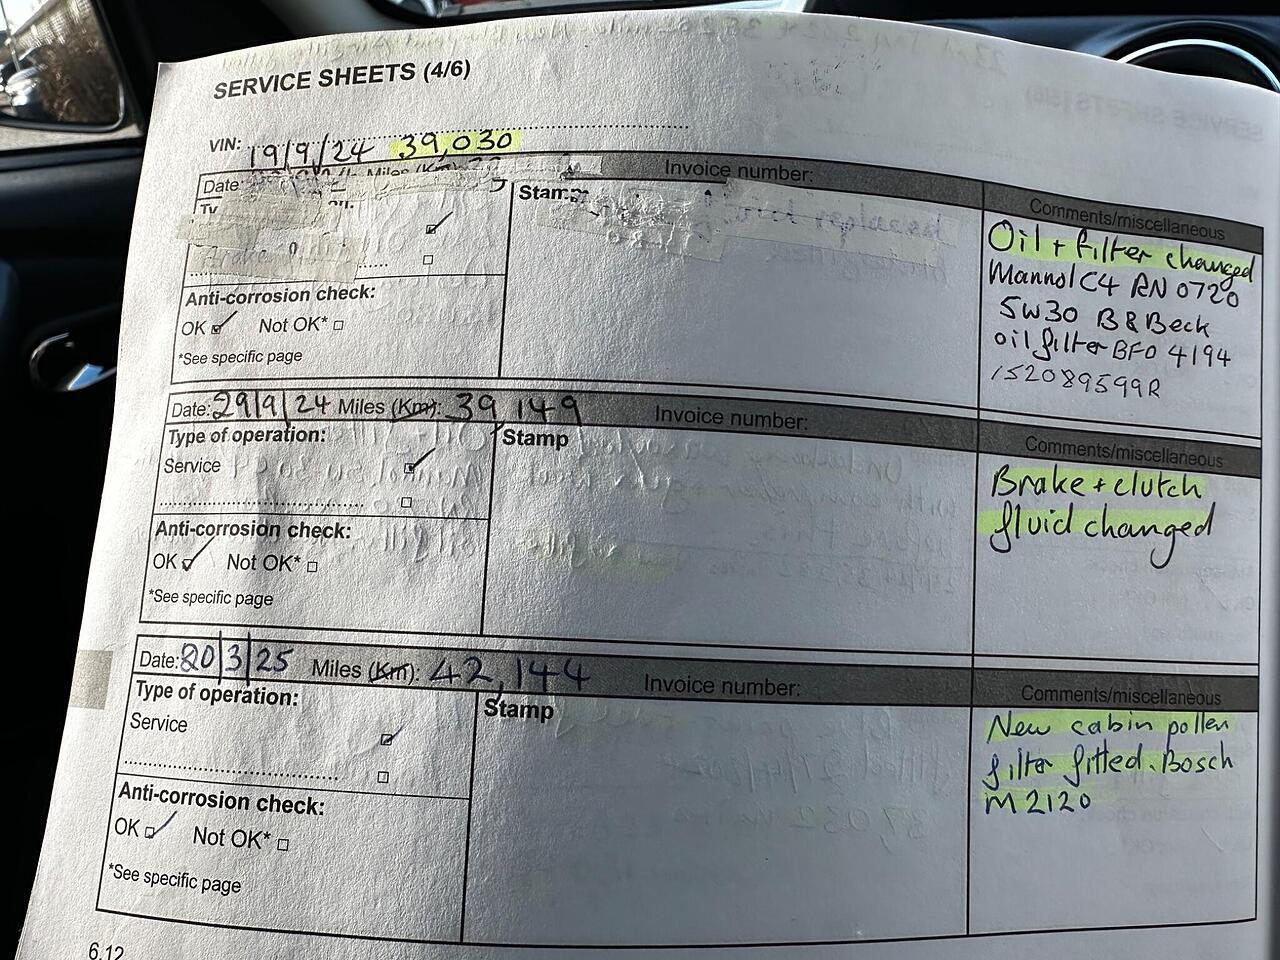 SERVICE SHEETS (4/6)
VIN:
19/9/24 39,030
Date: Miles (Km): Invoice number:
Stamp
Comments/miscellaneous
Oil + filter changed
Mannol C4 RN 0720
5W30 B&Beck
oil filter BFO 4194
152089599R
Anti-corrosion check:
OK Not OK*
*See specific page
Date: 29/9/24 Miles (Km): 39,149 Invoice number:
Type of operation:
Stamp
Comments/miscellaneous
Service
Brake + clutch
fluid changed
Anti-corrosion check:
OK Not OK*
*See specific page
Date: 20/3/25 Miles (Km): 42,144 Invoice number:
Type of operation:
Stamp
Comments/miscellaneous
Service
New cabin pollen
filter fitted. Bosch
M2120
Anti-corrosion check:
OK Not OK*
*See specific page
6.12